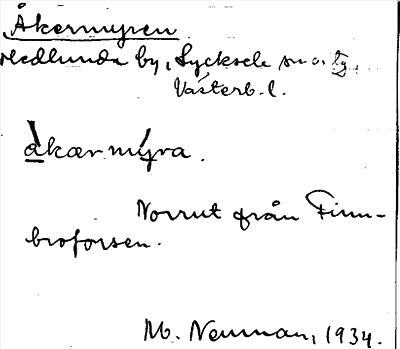 Åkermyren
Hedlunda by, Lycksele sn o. tg,
Västerb. l.
åkær mýra.
Norrut från Finn-
broforsen.
M. Neuman, 1934.